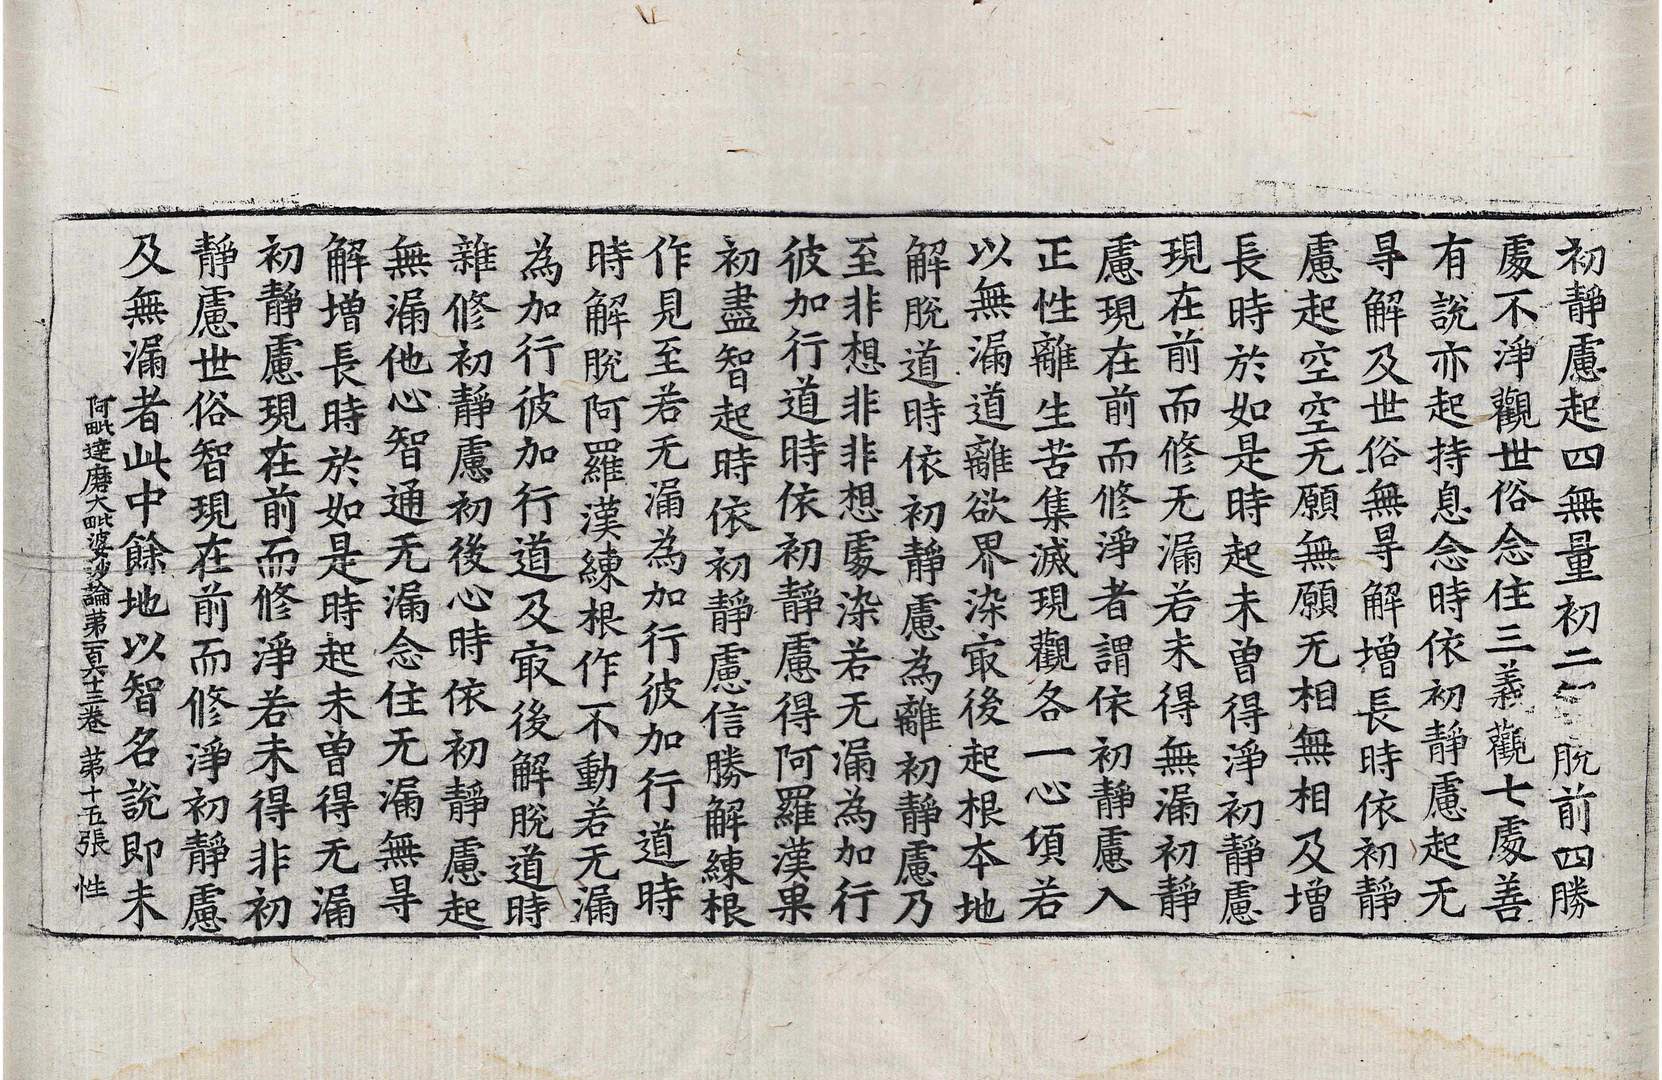 初靜慮起四無量初二脫前四勝
處不淨觀世俗念住三義觀七處善
有說亦起持息念時依初靜慮起无
㝵解及世俗無㝵解增長時依初靜
慮起空空无願無願无相無相及增
長時於如是時起未曾得淨初靜慮
現在前而修无漏若未得無漏初靜
慮現在前而修淨者謂依初靜慮入
正性離生苦集滅現觀各一心項若
以無漏道離欲界染㝡後起根本地
解脫道時依初靜慮為離初靜慮乃
至非想非非想處染若无漏為加行
彼加行道時依初靜慮得阿羅漢果
初盡智起時依初靜慮信勝解練根
作見至若无漏為加行彼加行道時
時解脫阿羅漢練根作不動若无漏
為加行彼加行道及㝡後解脫道時
雜修初靜慮初後心時依初靜慮起
無漏他心智通无漏念住无漏無㝵
解增長時於如是時起未曾得无漏
初靜慮現在前而修淨若未得非初
靜慮世俗智現在前而修淨初靜慮
及無漏者此中餘地以智名說即未
阿毗達磨大毗婆沙論苐一百六十三卷 苐十五張 性